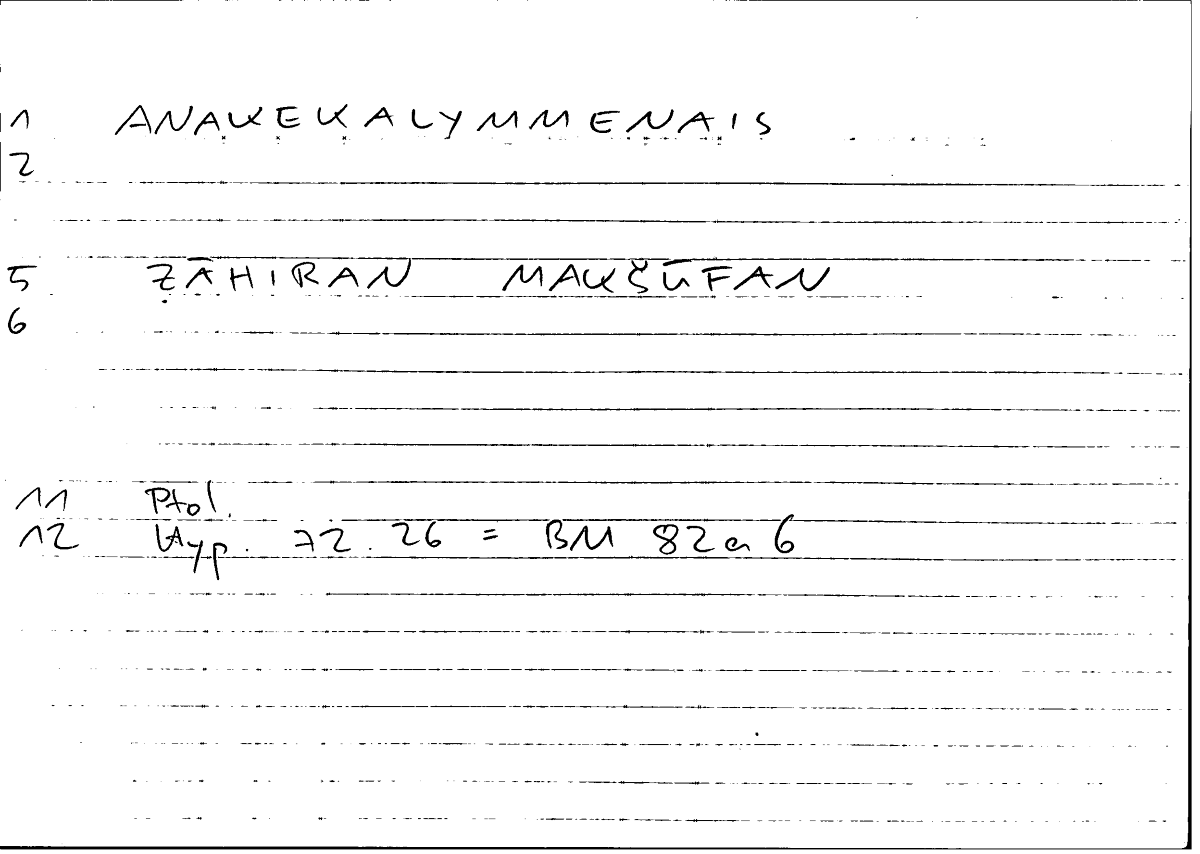 1 ANAKEKALYMMENAIS
2
5 ẒĀHIRAN MAKŠŪFAN
6
11 Ptol.
12 Hyp. 72.26 = BM 82a6